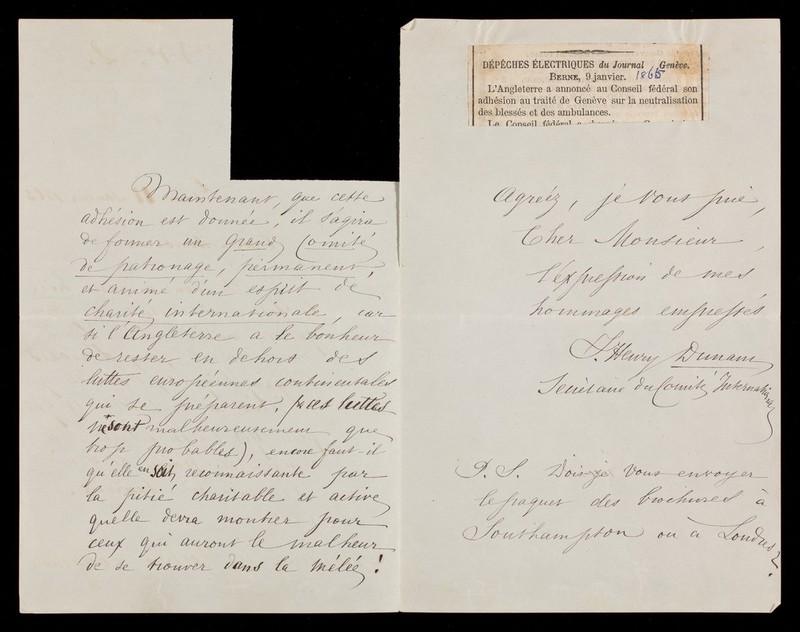 Maintenant, que cette
adhésion est donnée, il s'agira
de former un Grand Comité
de patronage, permanent,
et animé d'un esprit de
charité internationale, car
si l'Angleterre a le bonheur
de rester en dehors des
luttes européennes continentales
qui se préparent, (ces luttes
ne sont malheureusement que
trop probables), encore faut-il
qu'elle en soit reconnaissante par
la pitié charitable et active
qu'elle devra montrer pour
ceux qui auront le malheur
de se trouver dans la mêlée!
DÉPÊCHES ÉLECTRIQUES du Journal Genève.
BERNE, 9 janvier. 1865
L'Angleterre a annoncé au Conseil fédéral son
adhésion au traité de Genève sur la neutralisation
des blessés et des ambulances.
Le Conseil fédéral
Agréez, je vous prie,
Cher Monsieur,
l'expression de mes
hommages empressés
J. Henry Dunant
Secrétaire du Comité International
P. S. Dois-je vous envoyer
le paquet des brochures à
Southampton ou à Londres?